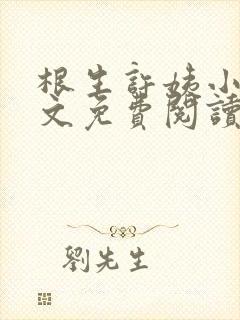 根生許姨小
文免費閱讀
劉先生